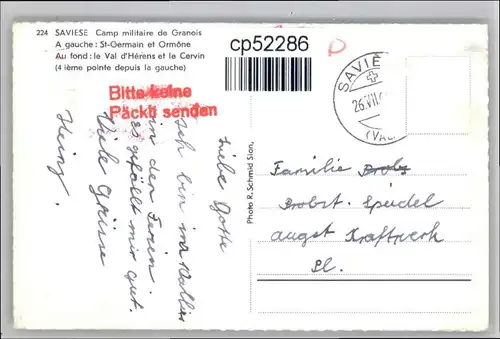 224 SAVIESE Camp militaire de Granois
A gauche : St-Germain et Ormône
Au fond : le Val d'Hérens et le Cervin
(4 ième pointe depuis la gauche)
cp52286
Bitte keine
Päckli senden
SAVIÈ
26.VII.
(VAL
Liebe Gotte
Ich bin im Wallis
in den Ferien.
es gefällt mir gut.
Viele Grüsse
Heinz.
Photo R. Schmid Sion,
Familie
Probst. Speidel
Augst Kraftwerk
Bl.